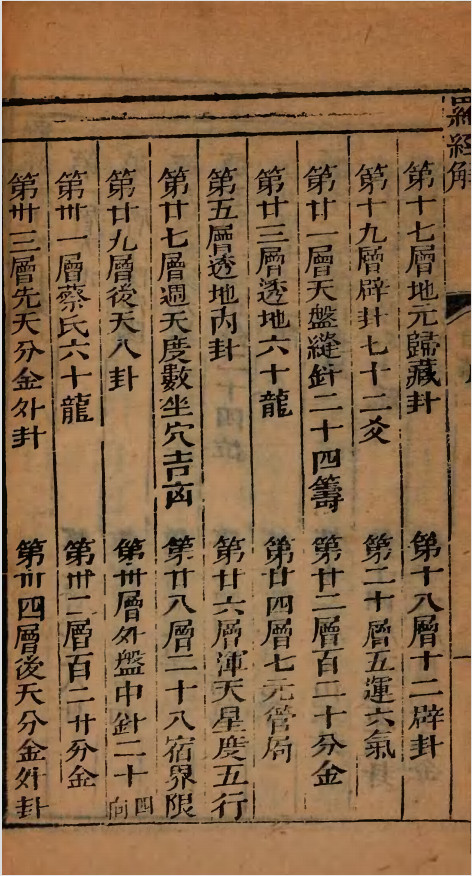 羅經解
第十七層地元歸藏卦
第十八層十二辟卦
第十九層辟卦七十二爻
第二十層五運六氣
第廿一層天盤縫針二十四籌
第廿二層百二十分金
第廿三層透地六十龍
第廿四層七元管局
第五層透地內卦
第廿六層渾天星度五行
第廿七層週天度數坐穴吉凶
第廿八層二十八宿界限
第廿九層後天八卦
第卅層外盤中針二十四向
第卅一層蔡氏六十龍
第卅二層百二十分金
第卅三層先天分金外卦
第卅四層後天分金外卦